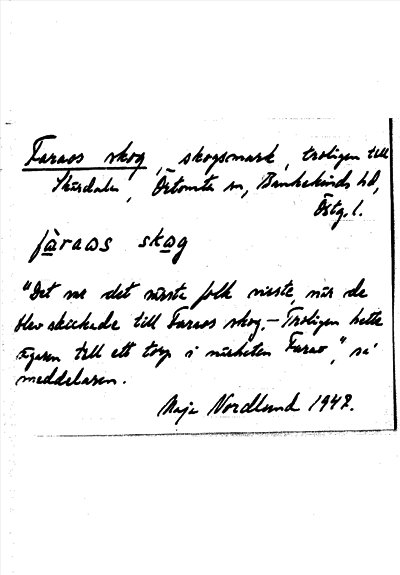 Faraos skog, skogsmark, troligen till
Skurdalen, Örtomta sn, Bankekinds hd,
Östg. l.
fàraωs skog
"Det var det värsta folk visste, när de
blev skickade till Faraos skog. – Troligen hette
ägaren till ett torp i närheten Farao", sa'
meddelaren.
Maja Nordlund 1947.